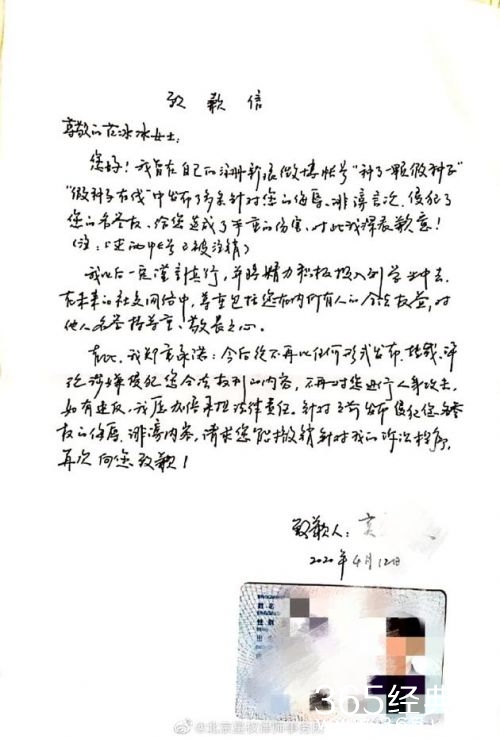 致歉信
尊敬的范冰冰女士:
您好!我曾在自己的注册新浪微博帐号"种了一颗假料子"
"假料子在线"中发布了多条针对您的侮辱、诽谤言论,侵犯了
您的名誉权,给您造成了严重的伤害,对此我深表歉意!
(注:上述两帐号已被注销)
我以后一定谨言慎行,并将精力积极投入到学业中去。
在未来的社交网络中,尊重包括您在内所有人的合法权益,对
他人名誉持尊重、敬畏之心。
在此,我郑重承诺:今后绝不再以任何形式发布、转载、评
论涉嫌侵犯您合法权利的内容,不再对您进行人身攻击,
如有违反,我愿加倍承担法律责任。针对之前发布侵犯您名誉
权的侮辱、诽谤内容,请求您能撤销针对我的诉讼程序,
再次向您致歉!
致歉人:
2020年4月12日
姓名
性别
出
365经典
@北京星权律师事务所